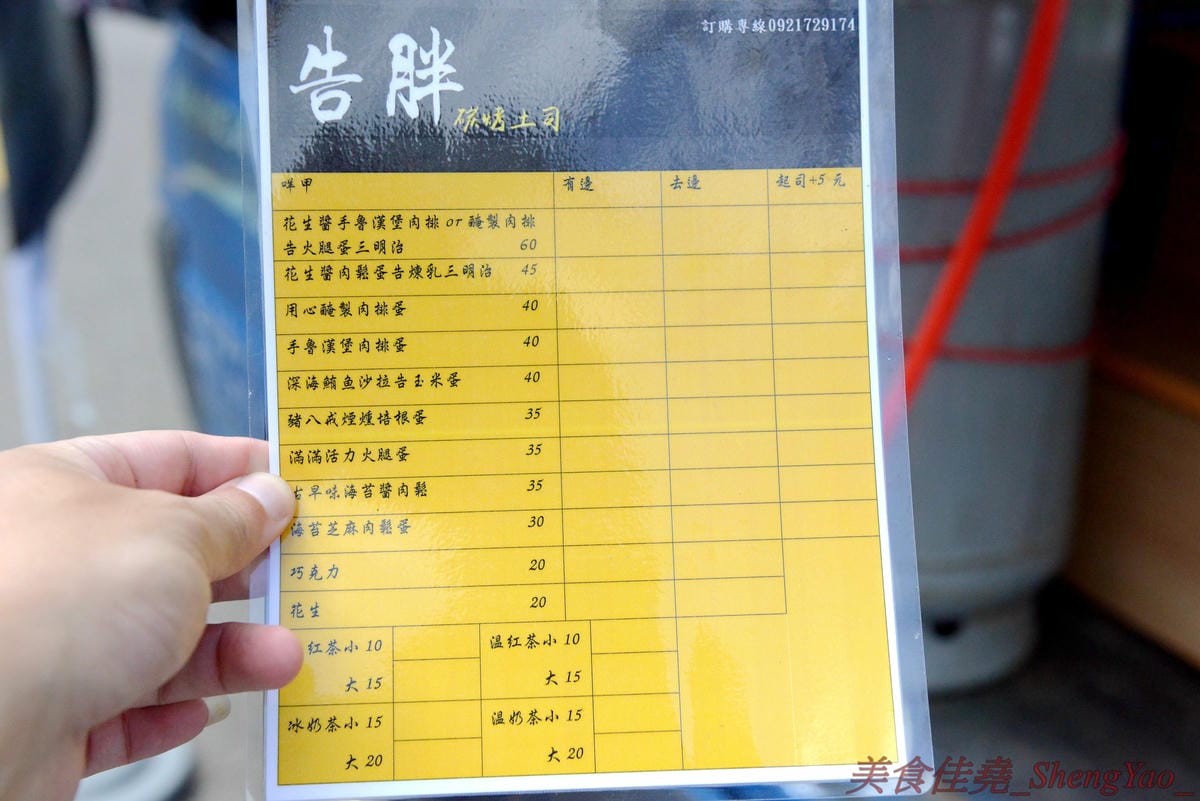 訂購專線0921729174
告胖
碳烤土司
咩甲 有邊 去邊 起司+5元
花生醬手魯漢堡肉排or醃製肉排
告火腿蛋三明治 60
花生醬肉鬆蛋告煉乳三明治 45
用心醃製肉排蛋 40
手魯漢堡肉排蛋 40
深海鮪魚沙拉告玉米蛋 40
豬八戒煙燻培根蛋 35
滿滿活力火腿蛋 35
古早味海苔醬肉鬆 35
海苔芝麻肉鬆蛋 30
巧克力 20
花生 20
紅茶小 10 溫紅茶小 10
大 15 大 15
冰奶茶小 15 溫奶茶小 15
大 20 大 20
美食佳堯_ShengYao_